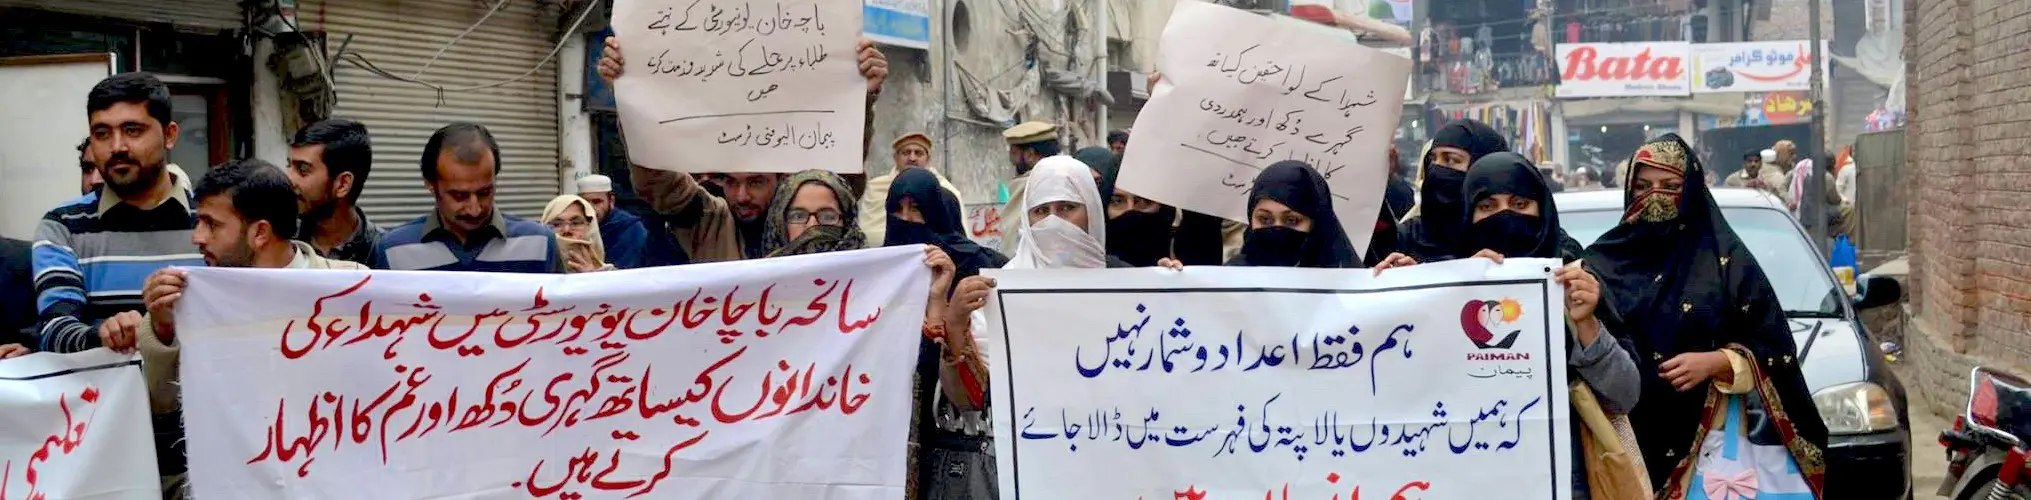 باچہ خان یونیورسٹی کے نہتے
طلباء پر حملے کی شدید مذمت کرتے
ھیں
پیمان الیومنی ٹرسٹ
شہدا کے لواحقین کیساتھ
گہرے دُکھ اور ہمدردی
کا اظہار کرتے ھیں
ٹرسٹ
Bata
علی فوٹو گرافر
سانحہ باچا خان یونیورسٹی میں شہداء کی
خاندانوں کیساتھ گہری دُکھ اور غم کا اظہار
کرتے ہیں.
ہم فقط اعداد و شمار نہیں
PAIMAN
پیمان
کہ ہمیں شہیدوں یا لاپتہ کی فہرست میں ڈالا جائے
ہم انسان ہیں
تعلیمی